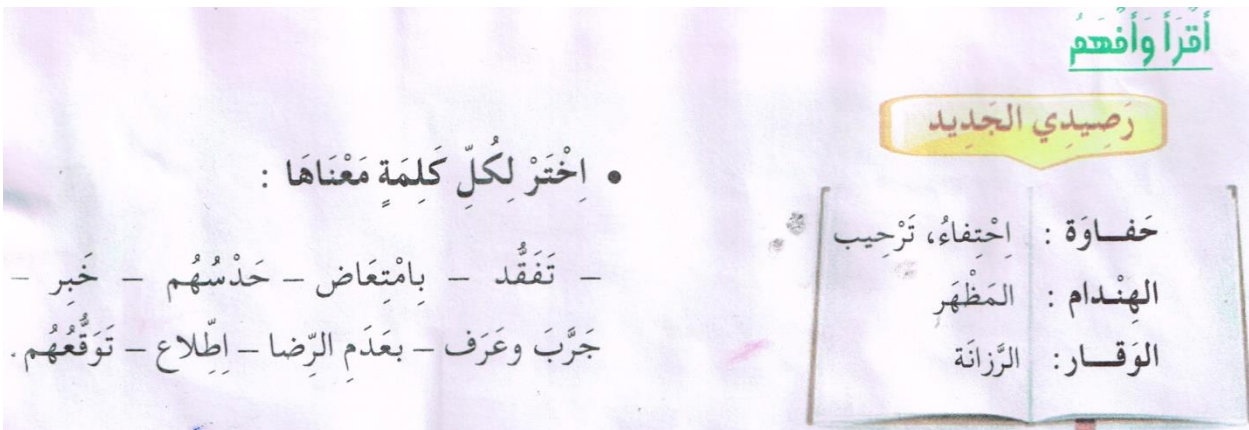 أَقْرَأُ وَأَفْهَمُ
رَصِيدِي الجَدِيد
حَفــاوَة : اِحْتِفاءُ، تَرْحِيب
الهِنْـدام : المَظْهَر
الوَقــار: الرَّزانَة
• اِخْتَرْ لِكُلِّ كَلِمَةٍ مَعْنَاهَا :
– تَفَقُّد – بِامْتِعَاض – حَدْسُهُم – خَبِر –
جَرَّبَ وعَرَف – بعَدَمِ الرِّضا – اطِّلاع – تَوَقُّعُهُم.